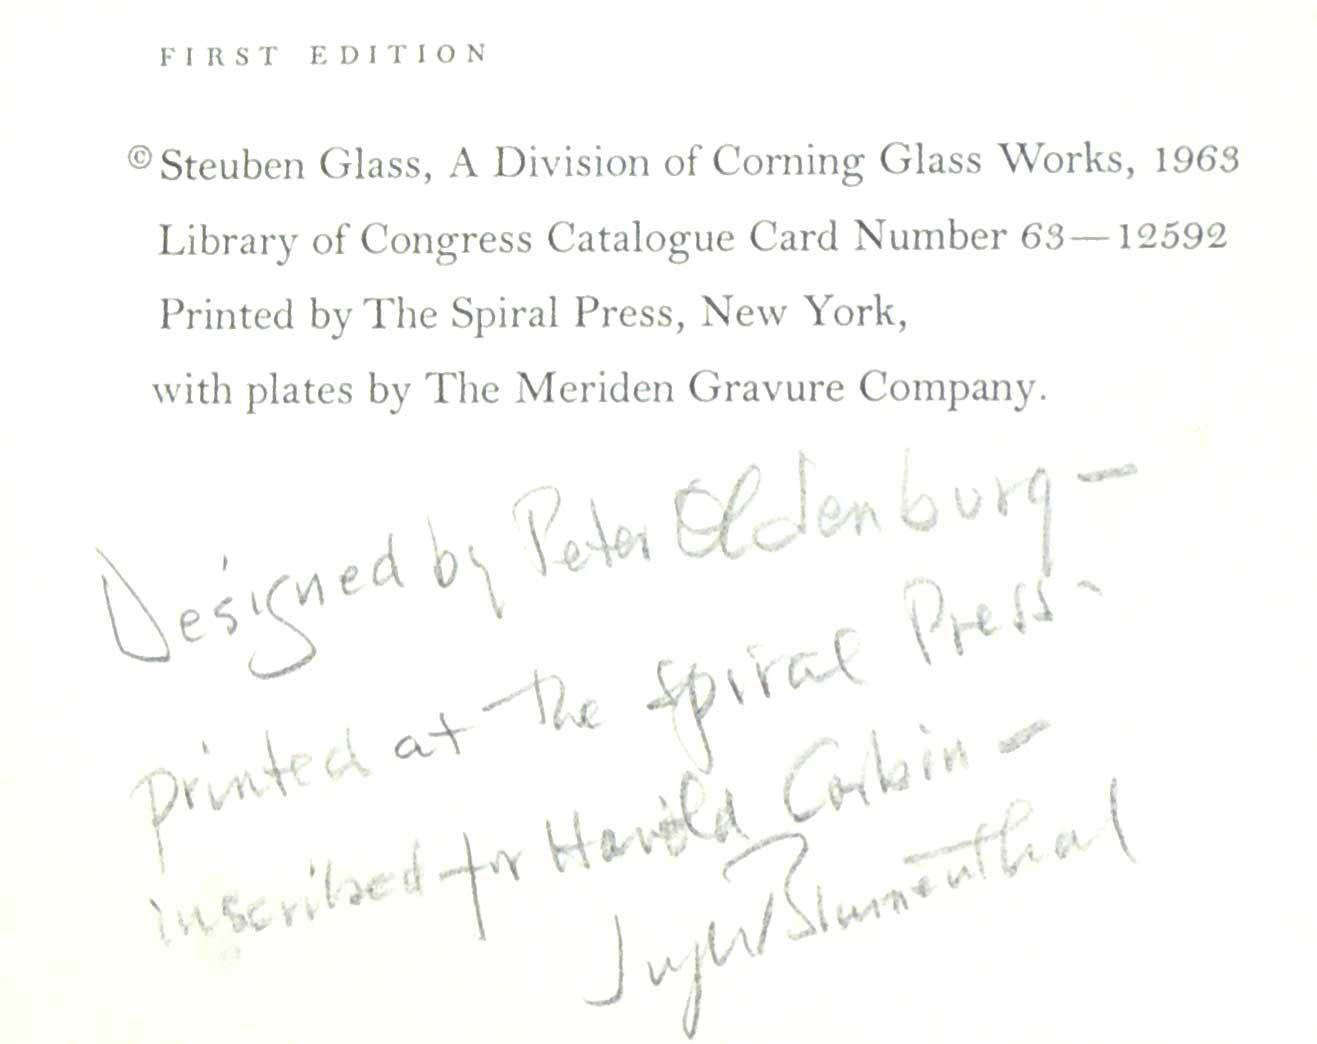 FIRST EDITION
© Steuben Glass, A Division of Corning Glass Works, 1963
Library of Congress Catalogue Card Number 63—12592
Printed by The Spiral Press, New York,
with plates by The Meriden Gravure Company.
Designed by Peter Oldenburg —
printed at the Spiral Press -
inscribed for Harold Corbin —
Blumenthal